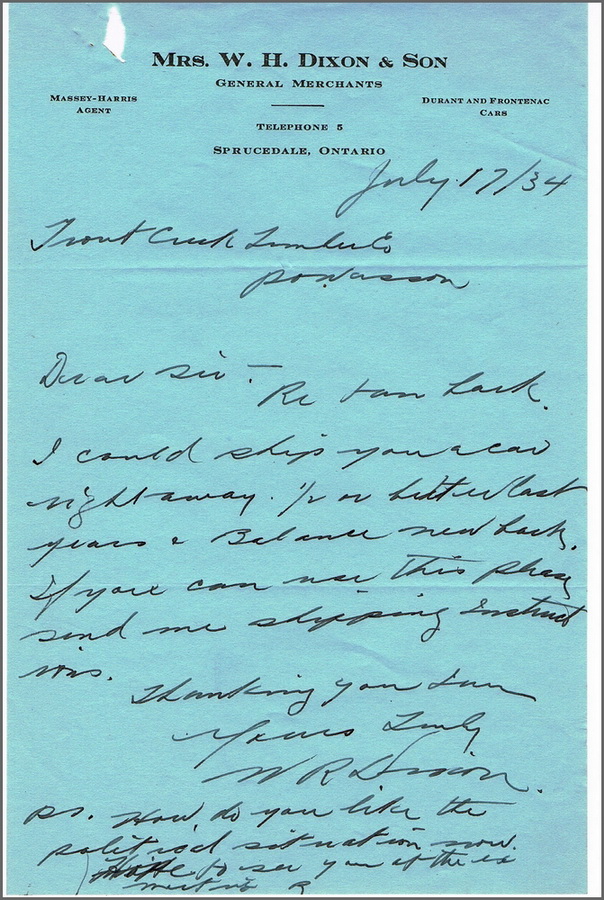 MRS. W. H. DIXON & SON
GENERAL MERCHANTS
MASSEY-HARRIS
AGENT
DURANT AND FRONTENAC
CARS
TELEPHONE 5
SPRUCEDALE, ONTARIO
July 17/34
Trout Creek Lumber Co
Powasson
Dear Sir :-
Re tan bark.
I could ship you a car
right away. 1/2 or better last
years & Balance new bark.
If you can use this please
send me shipping Instruct
ions.
Thanking you I am
Yours Truly
W R Dixon.
ps. How do you like the
political situation now.
Hope to see you at the
meeting